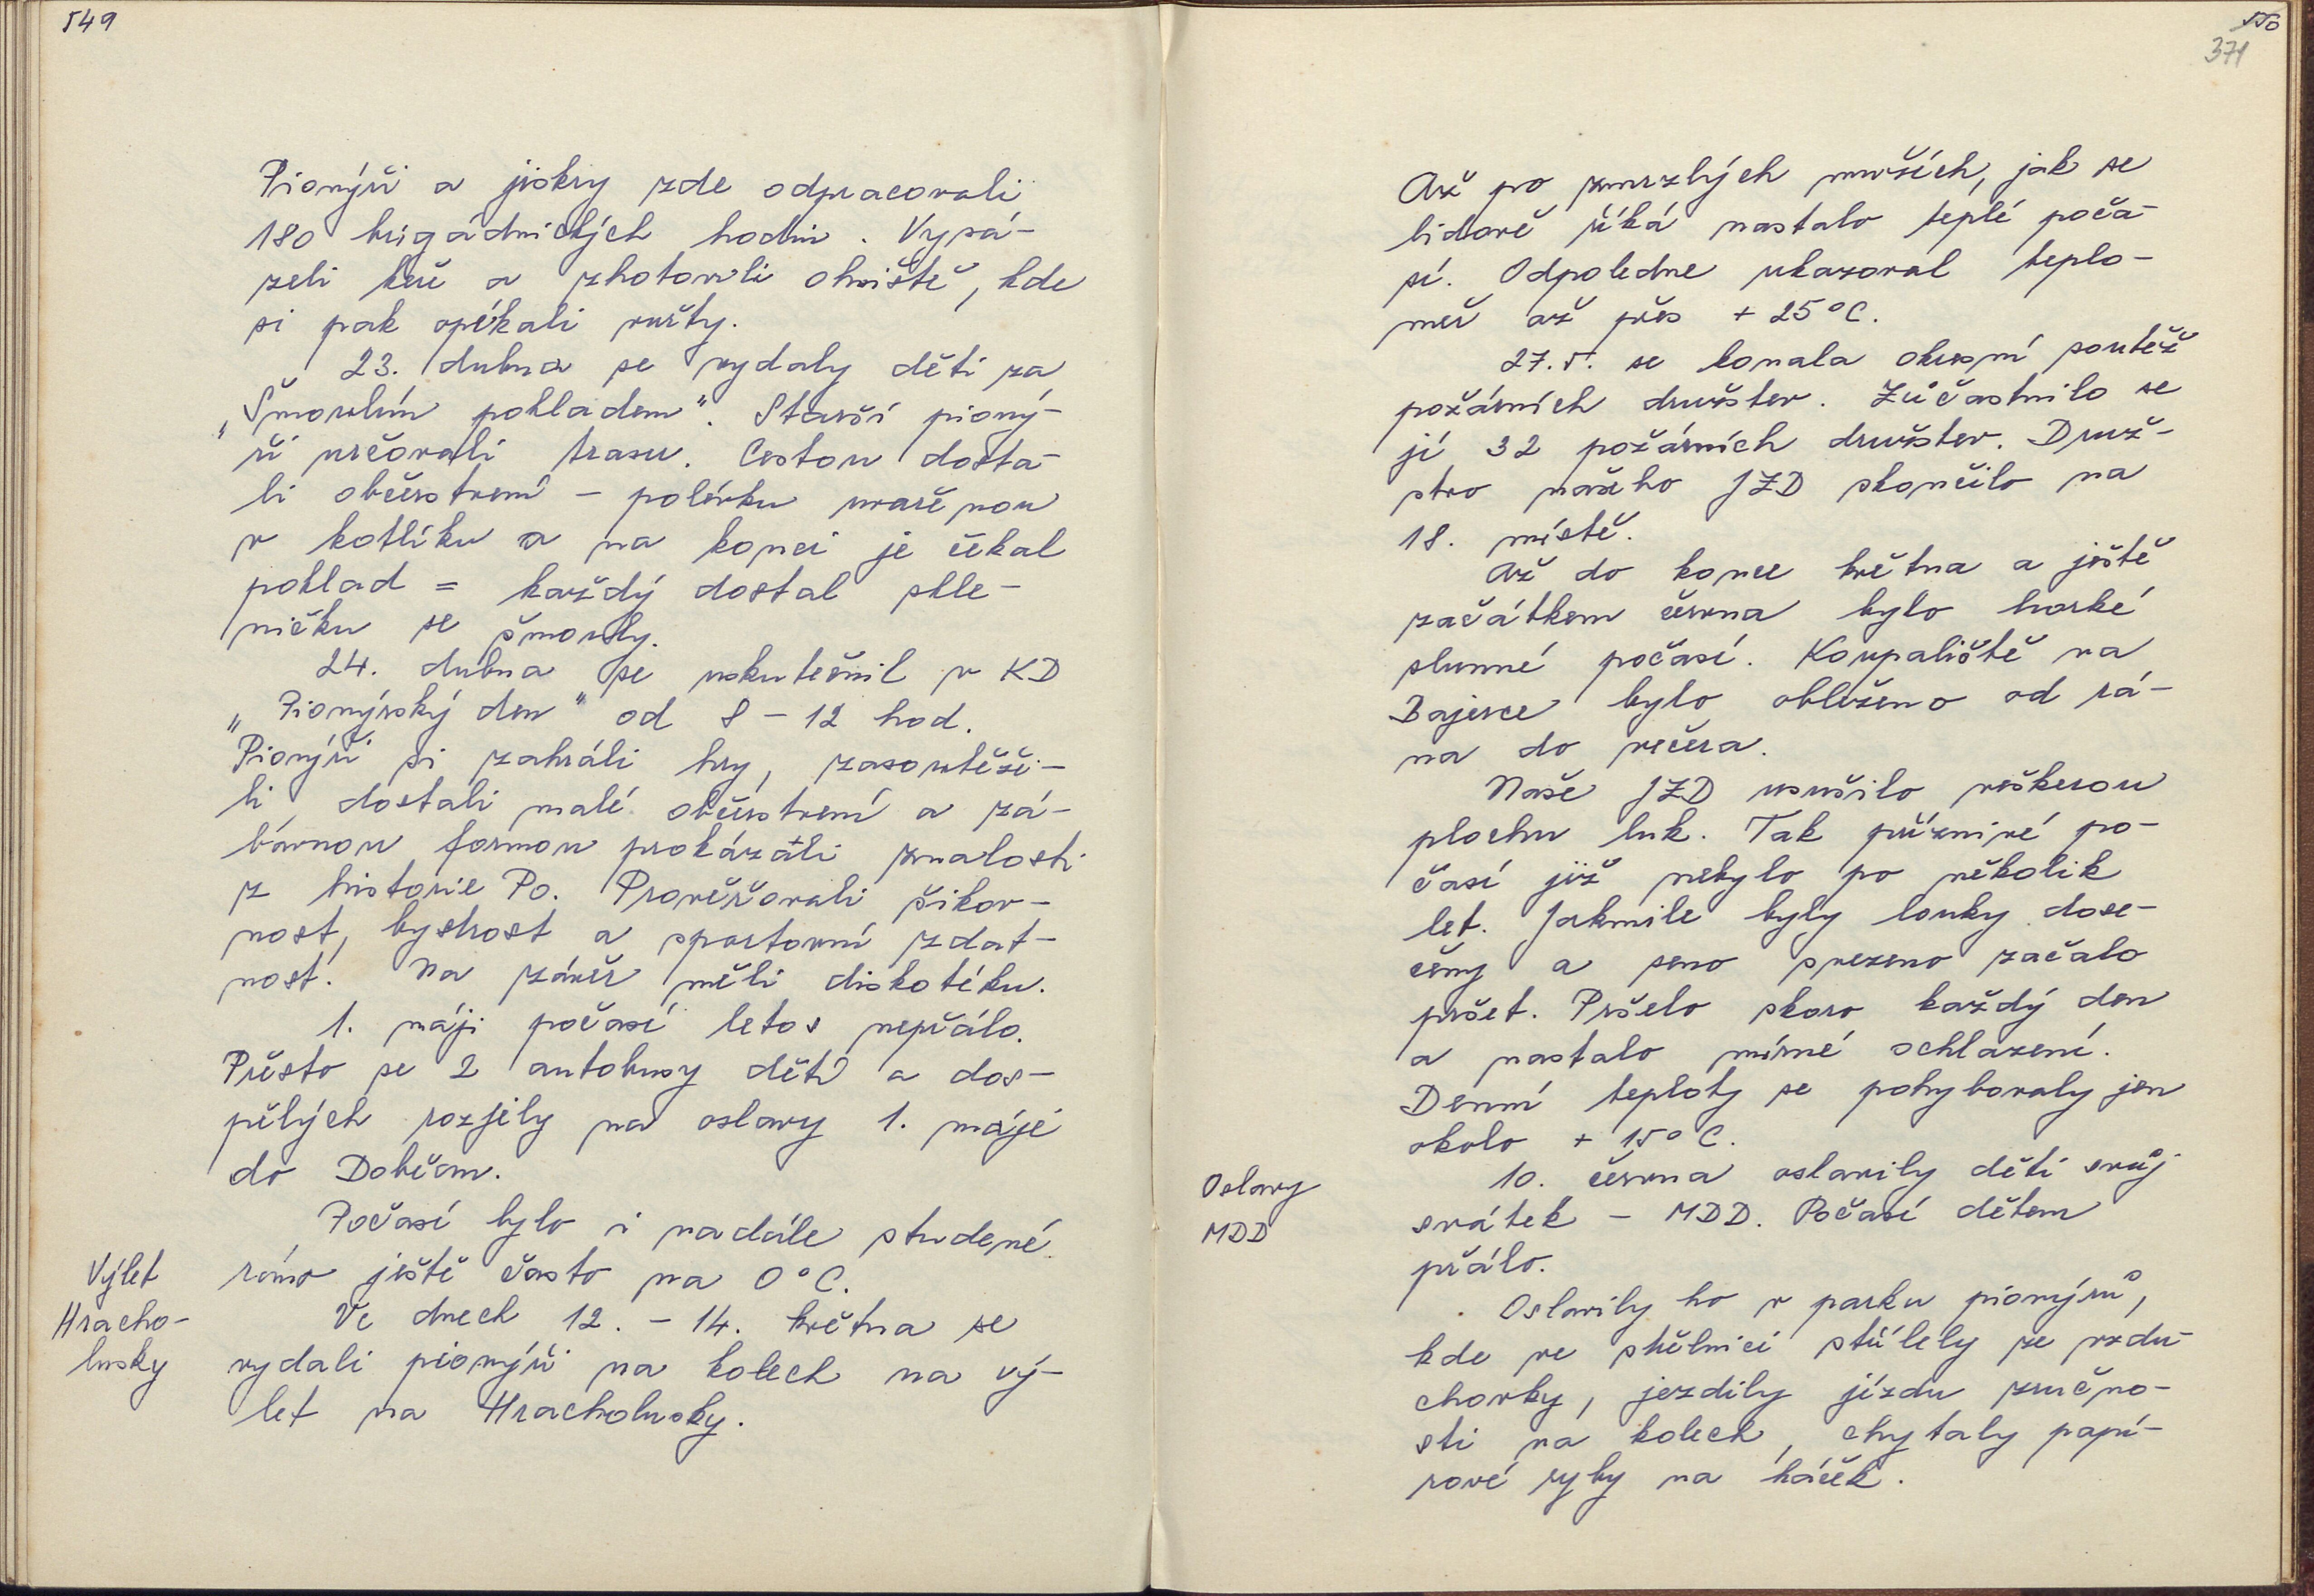 549
Pionýři a jiskry zde odpracovali
180 brigádnických hodin. Vysá-
zeli keře a zhotovili ohniště, kde
si pak opékali vuřty.
23. dubna se vydaly děti za
„Šmoulím pokladem". Starší pioný-
ři určovali trasu. Cestou dosta-
li občerstvení – polévku uvařenou
v kotlíku a na konci je čekal
poklad = každý dostal skle-
ničku se šmouly.
24. dubna se uskutečnil v KD
„Pionýrský den" od 8 – 12 hod.
Pionýři si zahráli hry, zasoutěži-
li dostali malé občerstvení a zá-
bavnou formou prokázali znalosti
z historie Po. Prověřovali šikov-
nost, bystrost a sportovní zdat-
nost. Na závěr měli diskotéku.
1. máji počasí letos nepřálo.
Přesto se 2 autobusy dětí a dos-
pělých rozjely na oslavy 1. máje
do Dobřan.
Počasí bylo i nadále studené
ráno ještě často na 0°C.
Výlet
Hracho-
lusky
Ve dnech 12. – 14. května se
vydali pionýři na kolech na vý-
let na Hracholusky.
550
371
Až po zmrzlých mužích, jak se
lidově říká nastalo teplé poča-
sí. Odpoledne ukazoval teplo-
měr až přes + 25°C.
27.5. se konala okresní soutěž
požárních družstev. Zúčastnilo se
jí 32 požárních družstev. Druž-
stvo našeho JZD skončilo na
18. místě.
Až do konce května a ještě
začátkem června bylo horké
slunné počasí. Koupaliště na
Bajerce bylo obleženo od rá-
na do večera.
Naše JZD usušilo veškerou
plochu luk. Tak příznivé po-
časí již nebylo po několik
let. Jakmile byly louky dose-
čeny a seno svezeno začalo
pršet. Pršelo skoro každý den
a nastalo mírné ochlazení.
Denní teploty se pohybovaly jen
okolo + 15°C.
Oslavy
MDD
10. června oslavily děti svůj
svátek – MDD. Počasí dětem
přálo.
Oslavily ho v parku pionýrů,
kde ve střelnici střílely ze vzdu-
chovky, jezdily jízdu zručno-
sti na kolech, chytaly papí-
rové ryby na háček.